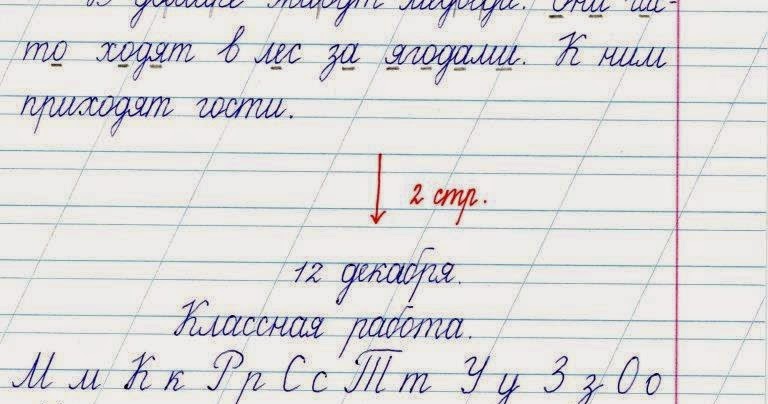 живут Они ча-
то ходят в лес за ягодами. К ним
приходят гости.
2 стр.
12 декабря.
Классная работа.
М м К к Р р С с Т т У у З з О о